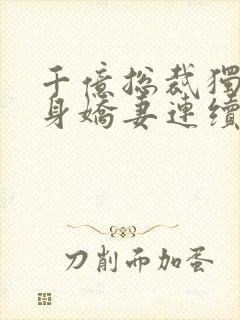 千億總裁獨
身嬌妻連續
刀削而加蛋